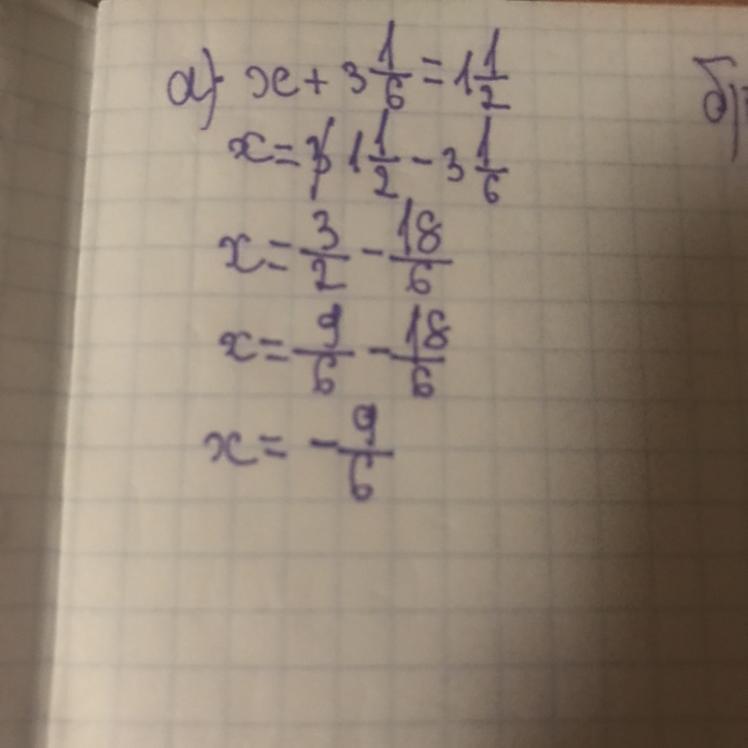 а) x + 3 1/6 = 1 1/2 б)
x = 1 1/2 - 3 1/6
x = 3/2 - 18/6
x = 9/6 - 18/6
x = - 9/6